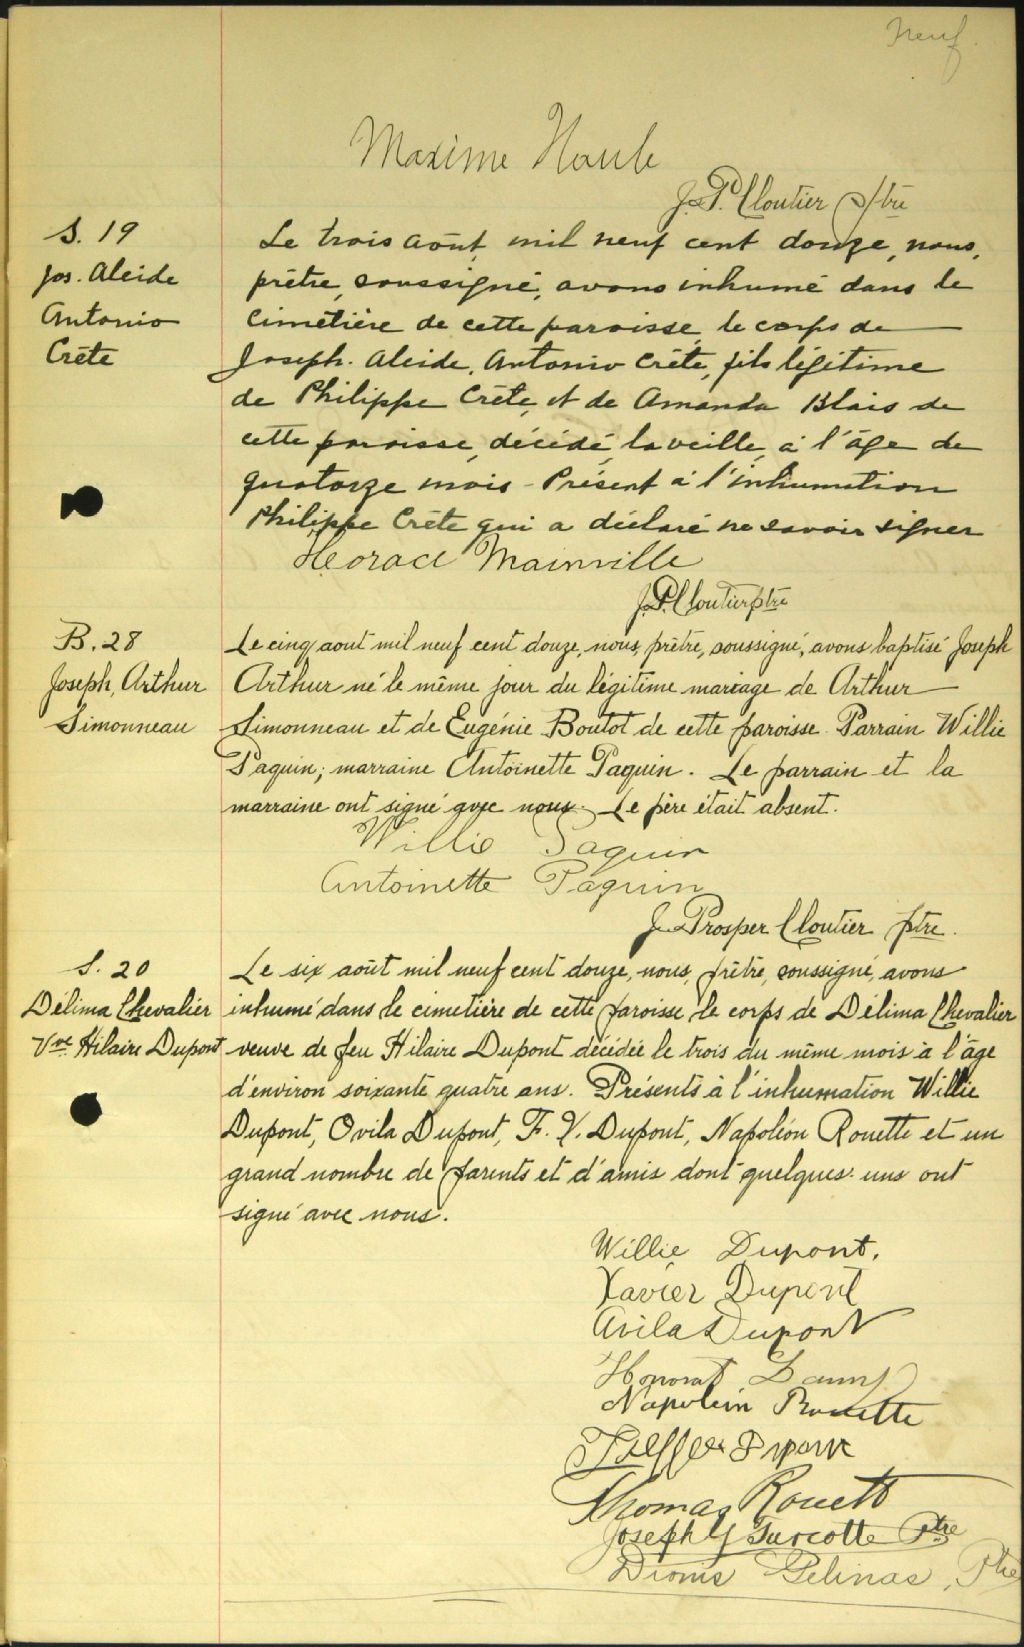 Neuf.
Maxime Houle
J. P. Cloutier ptre
S. 19
Jos. Alcide
Antonio
Crête
Le trois août, mil neuf cent douze, nous,
prêtre, soussigné, avons inhumé dans le
cimetière de cette paroisse, le corps de
Joseph. Alcide, Antonio Crête, fils légitime
de Philippe Crête, et de Amanda Blais de
cette paroisse, décédé, la veille, à l'âge de
quatorze mois - Présent à l'inhumation
Philippe Crête qui a déclaré ne savoir signer
Horace Mainville
J. P. Cloutier ptre
B. 28
Joseph, Arthur
Simonneau
Le cinq aout mil neuf cent douze, nous, prêtre, soussigné, avons baptisé Joseph
Arthur né le même jour du légitime mariage de Arthur
Simonneau et de Eugénie Boutot de cette paroisse. Parrain Willie
Paquin; marraine Antoinette Paquin. Le parrain et la
marraine ont signé avec nous. Le père était absent.
Willie Paquin
Antoinette Paquin
J. Prosper Cloutier ptre.
S. 20
Délima Chevalier
Vve Hilaire Dupont
Le six août mil neuf cent douze, nous, prêtre, soussigné, avons
inhumé dans le cimetière de cette paroisse le corps de Délima Chevalier
veuve de feu Hilaire Dupont décédée le trois du même mois à l'âge
d'environ soixante quatre ans. Présents à l'inhumation Willie
Dupont, Ovila Dupont, F. X. Dupont, Napoléon Rouette et un
grand nombre de parents et d'amis dont quelques-uns ont
signé avec nous.
Willie Dupont.
Xavier Dupont
Avila Dupont
Honorat
Napoléon Rouette
Dupont
Thomas Rouett
Joseph Turcotte Ptre
Dionis Gelinas, Ptre